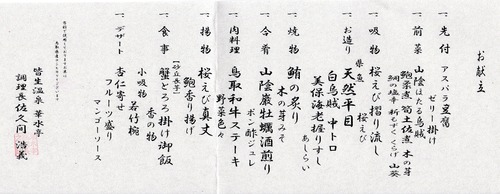 お献立
一、先付 アスパラ豆腐
ゼリー掛け
一、前菜 山陰ほたる烏賊
鮑柔煮 筍土佐煮 木の芽
鯛の塩辛 新もずくくらげ 山葵
一、吸物 桜えび摺り流し
県魚
一、お造り 天然平目
白烏賊 中トロ
美保海老握りすし
あしらい
一、焼物 鰆の炙り
木の芽みそ
一、合肴 山陰巌牡蠣酒煎り
ポン酢ジュレ
一、肉料理 鳥取和牛ステーキ
野菜色々
一、揚物 桜えび真丈
鮑香り揚げ
【砂丘長芋】
一、食事 蟹とろろ掛け御飯
香の物
小吸物 若竹椀
一、デザート 杏仁寄せ
フルーツ盛り
マンゴーソース
皆生温泉 華水亭
調理長 佐之間 浩義